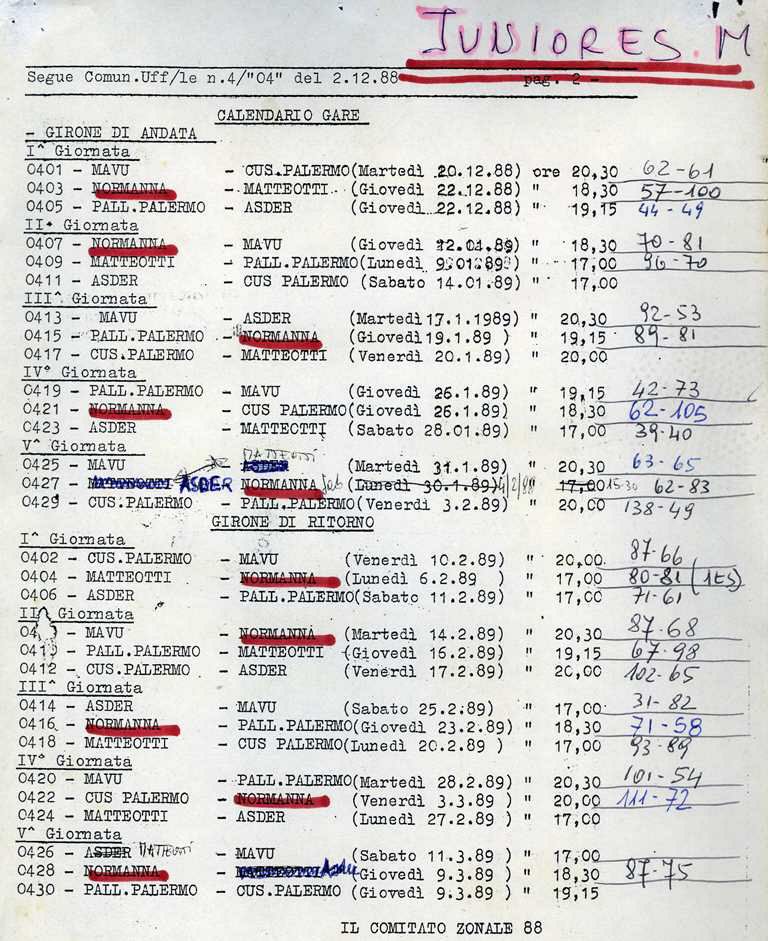 JUNIORES M
Segue Comun.Uff/le n.4/"04" del 2.12.88 pag. 2 -
CALENDARIO GARE
- GIRONE DI ANDATA
I^ Giornata
0401 - MAVU - CUS.PALERMO(Martedì 20.12.88) ore 20,30 62-61
0403 - NORMANNA - MATTEOTTI (Giovedì 22.12.88) " 18,30 57-100
0405 - PALL.PALERMO - ASDER (Giovedì 22.12.88) " 19,15 44-49
II^ Giornata
0407 - NORMANNA - MAVU (Giovedì 12.01.89) " 18,30 70-81
0409 - MATTEOTTI - PALL.PALERMO(Lunedì 9.01.89) " 17,00 96-70
0411 - ASDER - CUS PALERMO (Sabato 14.01.89) " 17,00
III^ Giornata
0413 - MAVU - ASDER (Martedì 17.1.1989) " 20,30 92-53
0415 - PALL.PALERMO - NORMANNA (Giovedì 19.1.89 ) " 19,15 89-81
0417 - CUS.PALERMO - MATTEOTTI (Venerdì 20.1.89) " 20,00
IV° Giornata
0419 - PALL.PALERMO - MAVU (Giovedì 26.1.89) " 19,15 42-73
0421 - NORMANNA - CUS PALERMO(Giovedì 26.1.89) " 18,30 62-105
0423 - ASDER - MATTECTTI (Sabato 28.01.89) " 17,00 39-40
V^ Giornata
0425 - MAVU - MATTEOTTI ASDER (Martedì 31.1.89) " 20,30 63-65
0427 - MATTEOTTI ASDER NORMANNA Sab (Lunedì 30.1.89) 4/2/88 " 17,00 15.30 62-83
0429 - CUS.PALERMO - PALL.PALERMO(Venerdì 3.2.89) " 20,00 138-49
GIRONE DI RITORNO
I^ Giornata
0402 - CUS.PALERMO - MAVU (Venerdì 10.2.89) " 20,00 87-66
0404 - MATTEOTTI - NORMANNA (Lunedì 6.2.89 ) " 17,00 80-81 (1ts)
0406 - ASDER - PALL.PALERMO(Sabato 11.2.89) " 17,00 71-61
II^ Giornata
- MAVU - NORMANNA (Martedì 14.2.89) " 20,30 87-68
- PALL.PALERMO - MATTEOTTI (Giovedì 16.2.89) " 19,15 67-98
0412 - CUS.PALERMO - ASDER (Venerdì 17.2.89) " 20,00 102-65
III^ Giornata
0414 - ASDER - MAVU (Sabato 25.2.89) " 17,00 31-82
0416 - NORMANNA - PALL.PALERMO(Giovedì 23.2.89) " 18,30 71-58
0418 - MATTEOTTI - CUS PALERMO(Lunedì 20.2.89 ) " 17,00 93-89
IV^ Giornata
0420 - MAVU - PALL.PALERMO(Martedì 28.2.89) " 20,30 101-54
0422 - CUS PALERMO - NORMANNA (Venerdì 3.3.89 ) " 20,00 111-72
0424 - MATTEOTTI - ASDER (Lunedì 27.2.89 ) " 17,00
V^ Giornata
0426 - ASDER MATTEOTTI - MAVU (Sabato 11.3.89 ) " 17,00
0428 - NORMANNA - MATTEOTTI Asder (Giovedì 9.3.89 ) " 18,30 87-75
0430 - PALL.PALERMO - CUS.PALERMO (Giovedì 9.3.89 ) " 19,15
IL COMITATO ZONALE 88